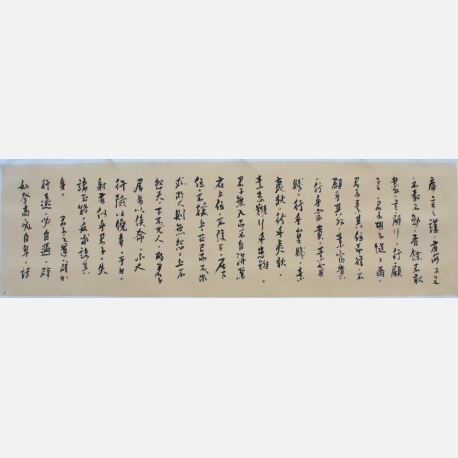 庸言之謹有所不足
不敢不勉有餘不敢
盡言顧行行顧
言君子胡不慥慥爾
君子素其位而行不
願乎其外素富貴
行乎富貴素貧
賤行乎貧賤素
夷狄行乎夷狄
素患難行乎患難
君子無入而不自得焉
在上位不陵下在下
位不援上正己而不求
於人則無怨上不
怨天下不尤人故君子
居易以俟命小人
行險以徼幸子曰
射有似乎君子失
諸正鵠反求諸其
身君子之道辟如
行遠必自邇辟
如登高必自卑詩